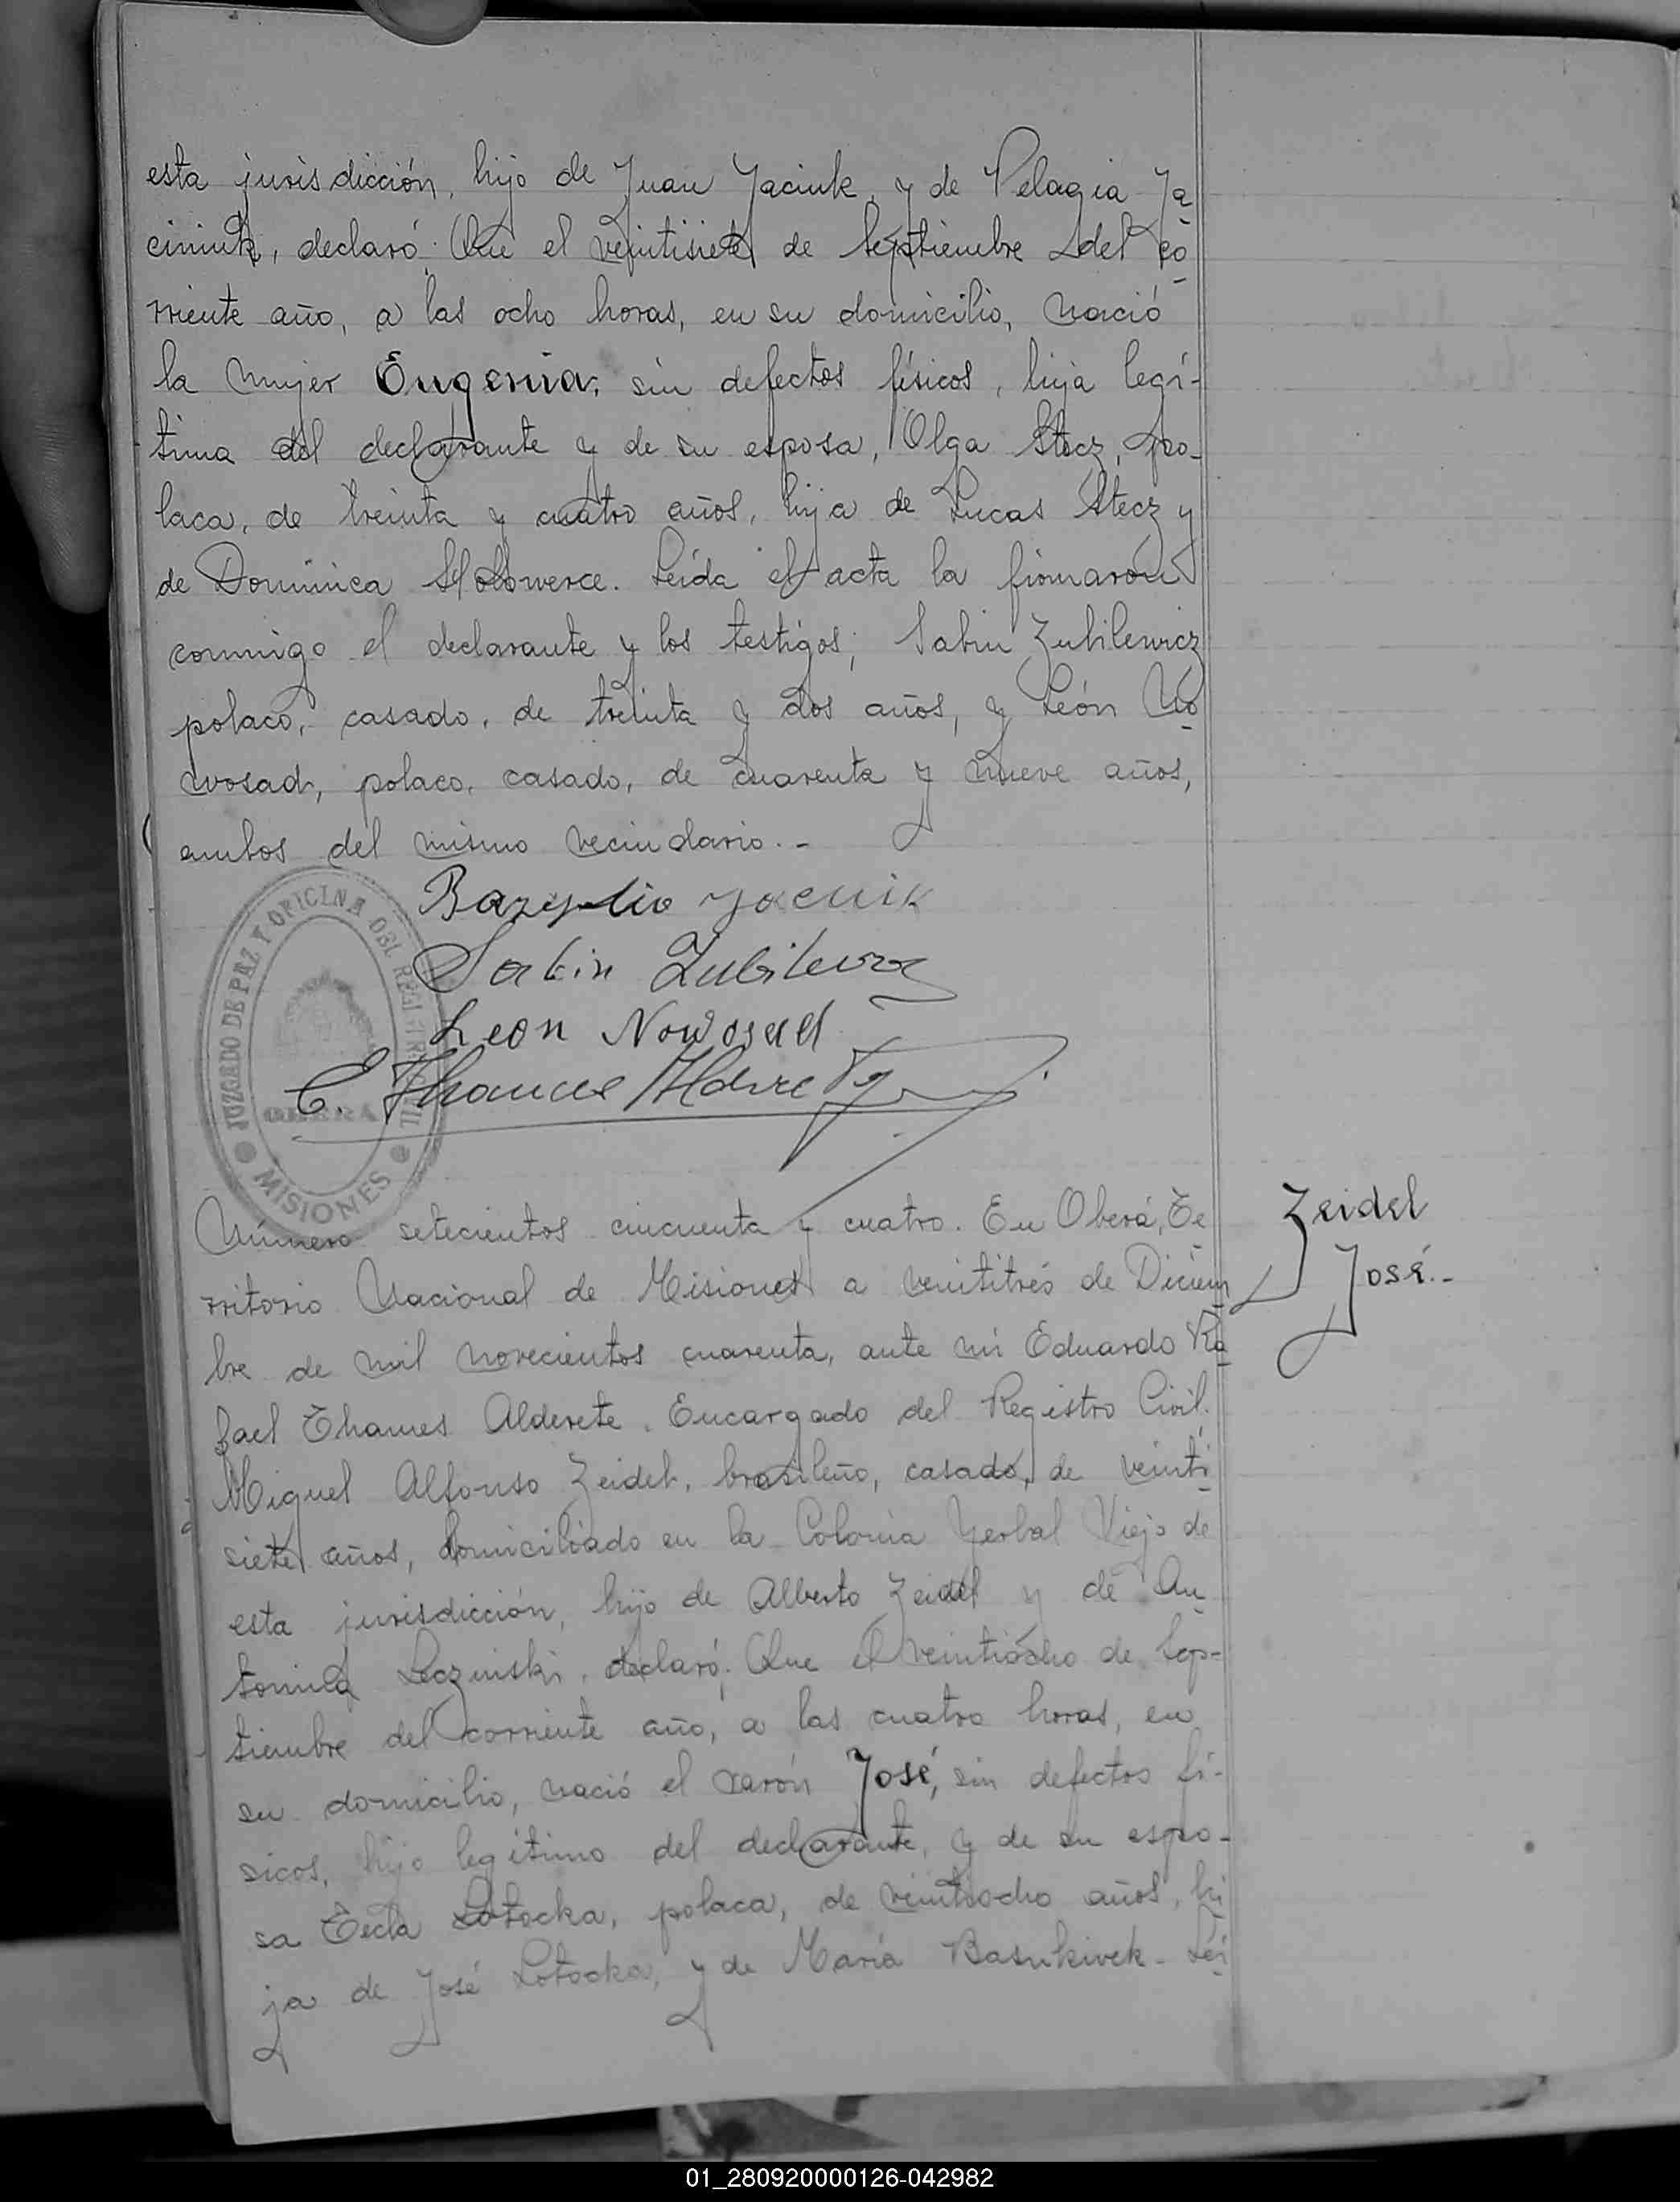 esta jurisdicción, hijo de Juan Yaciuk, y de Pelagia Ya
ciniuk, declaró: Que el veintisiete de Septiembre del co
rriente año, a las ocho horas, en su domicilio, nació
la mujer Eugenia, sin defectos físicos, hija legí-
tima del declarante y de su esposa, Olga Stecz, po-
laca, de treinta y cuatro años, hija de Lucas Stecz y
de Domínica. Leída el acta la firmaron
conmigo el declarante y los testigos; Sabin Zubilewicz
polaco, casado, de treinta y dos años, y León No
wosad, polaco, casado, de cuarenta y nueve años,
ambos del mismo vecindario.-
Bazylio Yacnik
Sabin Zubilewicz
Leon Nowosad
E. Thames Alderete
JUZGADO DE PAZ Y OFICINA DEL REGISTRO CIVIL
OBERA
MISIONES
Número setecientos cincuenta y cuatro. En Oberá, Te
rritorio Nacional de Misiones a veintitrés de Diciem
bre de mil novecientos cuarenta, ante mí Eduardo Ra
fael Thames Alderete, Encargado del Registro Civil.
Miguel Alfonso Zeidel, brasileño, casado, de veinti
siete años, domiciliado en la Colonia Yerbal Viejo de
esta jurisdicción, hijo de Alberto Zeidel y de An
tonila Leczniski, declaró: Que el veintiocho de Sep-
tiembre del corriente año, a las cuatro horas, en
su domicilio, nació el varón José, sin defectos fí-
sicos, hijo legítimo del declarante, y de su espo-
sa Tecla Lotocka, polaca, de veintiocho años, hi
ja de José Lotocka, y de María Basukivek. Leí
Zeidel
José.-
01_280920000126-042982